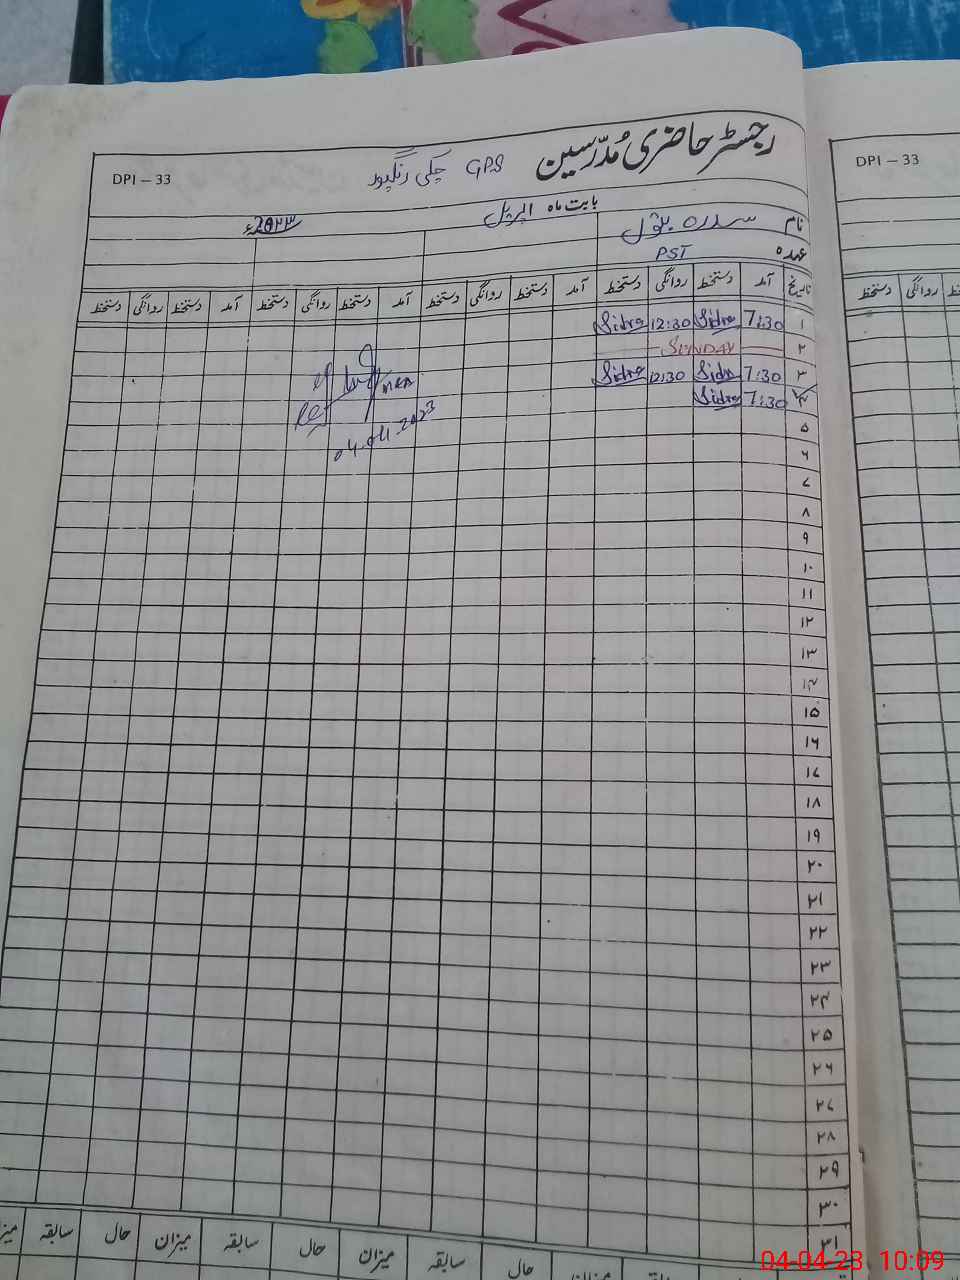 رجسٹر حاضری مُدرّسین
GPS چکی رنگپور
DPI – 33
DPI – 33
بابت ماہ اپریل
نام سدرہ بتول
عہدہ PST
تاریخ آمد دستخط روانگی دستخط آمد دستخط روانگی دستخط آمد دستخط روانگی دستخط آمد دستخط روانگی دستخط
دستخط روانگی
۱ 7:30 Sidra 12:30 Sidra
۲ SUNDAY
۳ 7:30 Sidra 12:30 Sidra
۴ 7:30 Sidra
04-04-2023
۵
۶
۷
۸
۹
۱۰
۱۱
۱۲
۱۳
۱۴
۱۵
۱۶
۱۷
۱۸
۱۹
۲۰
۲۱
۲۲
۲۳
۲۴
۲۵
۲۶
۲۷
۲۸
۲۹
۳۰
۳۱
حال سابقہ میزان حال سابقہ میزان حال سابقہ
04-04-23 10:09